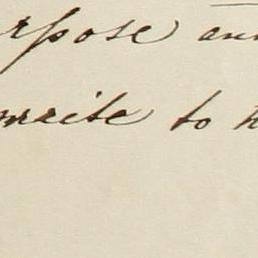 rpose an
write to h